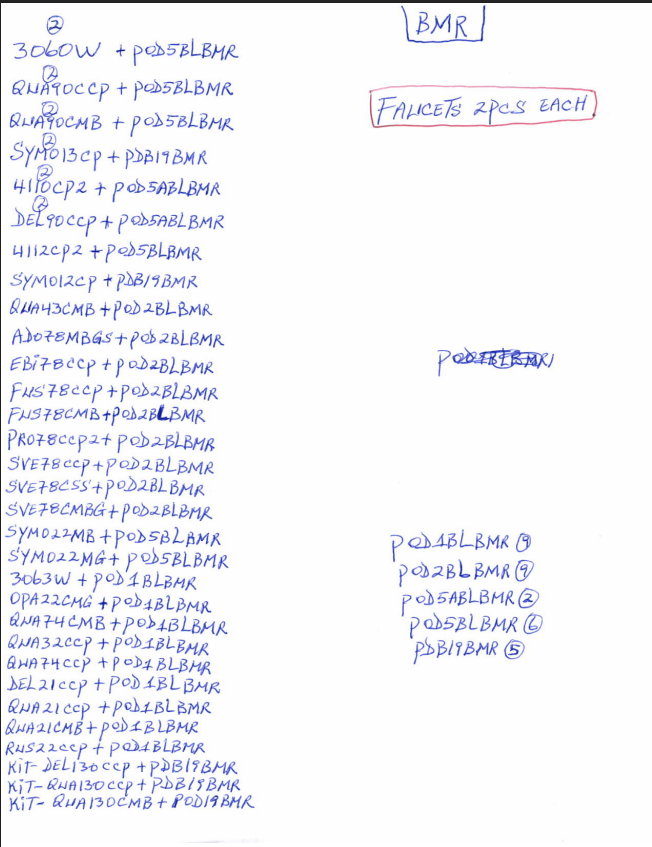 BMR
FAUCETS 2PCS EACH
②
3060W + POD5BLBMR
②
QUA90CCP + POD5BLBMR
②
QUA90CMB + POD5BLBMR
②
SYM013CP + PDB19BMR
②
4110CP2 + POD5ABLBMR
②
DEL90CCP + POD5ABLBMR
4112CP2 + POD5BLBMR
SYM012CP + PDB19BMR
QUA43CMB + POD2BLBMR
ADO78MBGS + POD2BLBMR
EBi78CCP + POD2BLBMR
FUS78CCP + POD2BLBMR
FUS78CMB + POD2BLBMR
PRO78CCP2 + POD2BLBMR
SVE78CCP + POD2BLBMR
SVE78CSS + POD2BLBMR
SVE78CMBG + POD2BLBMR
SYM022MB + POD5BLBMR
SYM022MG + POD5BLBMR
3063W + POD1BLBMR
OPA22CMG + POD1BLBMR
QUA74CMB + POD1BLBMR
QUA32CCP + POD1BLBMR
QUA74CCP + POD1BLBMR
DEL21CCP + POD1BLBMR
QUA21CCP + POD1BLBMR
QUA21CMB + POD1BLBMR
RUS22CCP + POD1BLBMR
KiT- DEL130CCP + PDB19BMR
KiT- QUA130CCP + PDB19BMR
KiT- QUA130CMB + POD19BMR
POD1BLBMR ⑨
POD2BLBMR ⑨
POD5ABLBMR ②
POD5BLBMR ⑥
PDB19BMR ⑤